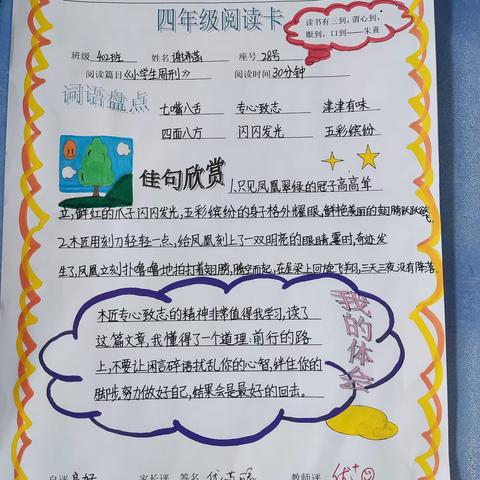 四年级阅读卡
读书有三到，谓心到，
眼到，口到——朱熹
班级 402班 姓名 谢沛菡 座号 28号
阅读篇目《小学生周刊》 阅读时间 30分钟
词语盘点
七嘴八舌 专心致志 津津有味
四面八方 闪闪发光 五彩缤纷
佳句欣赏
1.只见凤凰翠绿的冠子高高耸
立，鲜红的爪子闪闪发光，五彩缤纷的身子格外耀眼，鲜艳美丽的翅膀跃跃
2.木匠用刻刀轻轻一点、给凤凰刻上了一双明亮的眼睛，霎时，奇迹发
生了，凤凰立刻扑噜噜地拍打着翅膀，腾空而起，在屋梁上回旋飞翔，三天三夜没有降落。
我的体会
木匠专心致志的精神非常值得我学习，读了
这篇文章，我懂得了一个道理：前行的路
上，不要让闲言碎语扰乱你的心智，绊住你的
脚步，努力做好自己，结果会是最好的回击。
自评 良好 家长评 签名 教师评 优+